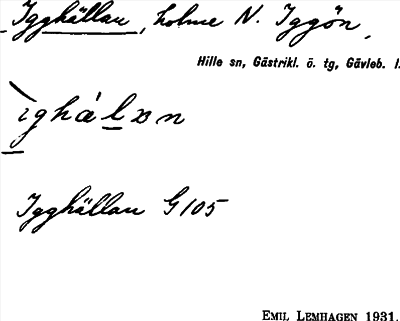 Igghällan, holme N. Iggön,
Hille sn, Gästrikl. ö. tg, Gävleb. l.
Igghällan G 105
EMIL LEMHAGEN 1931.